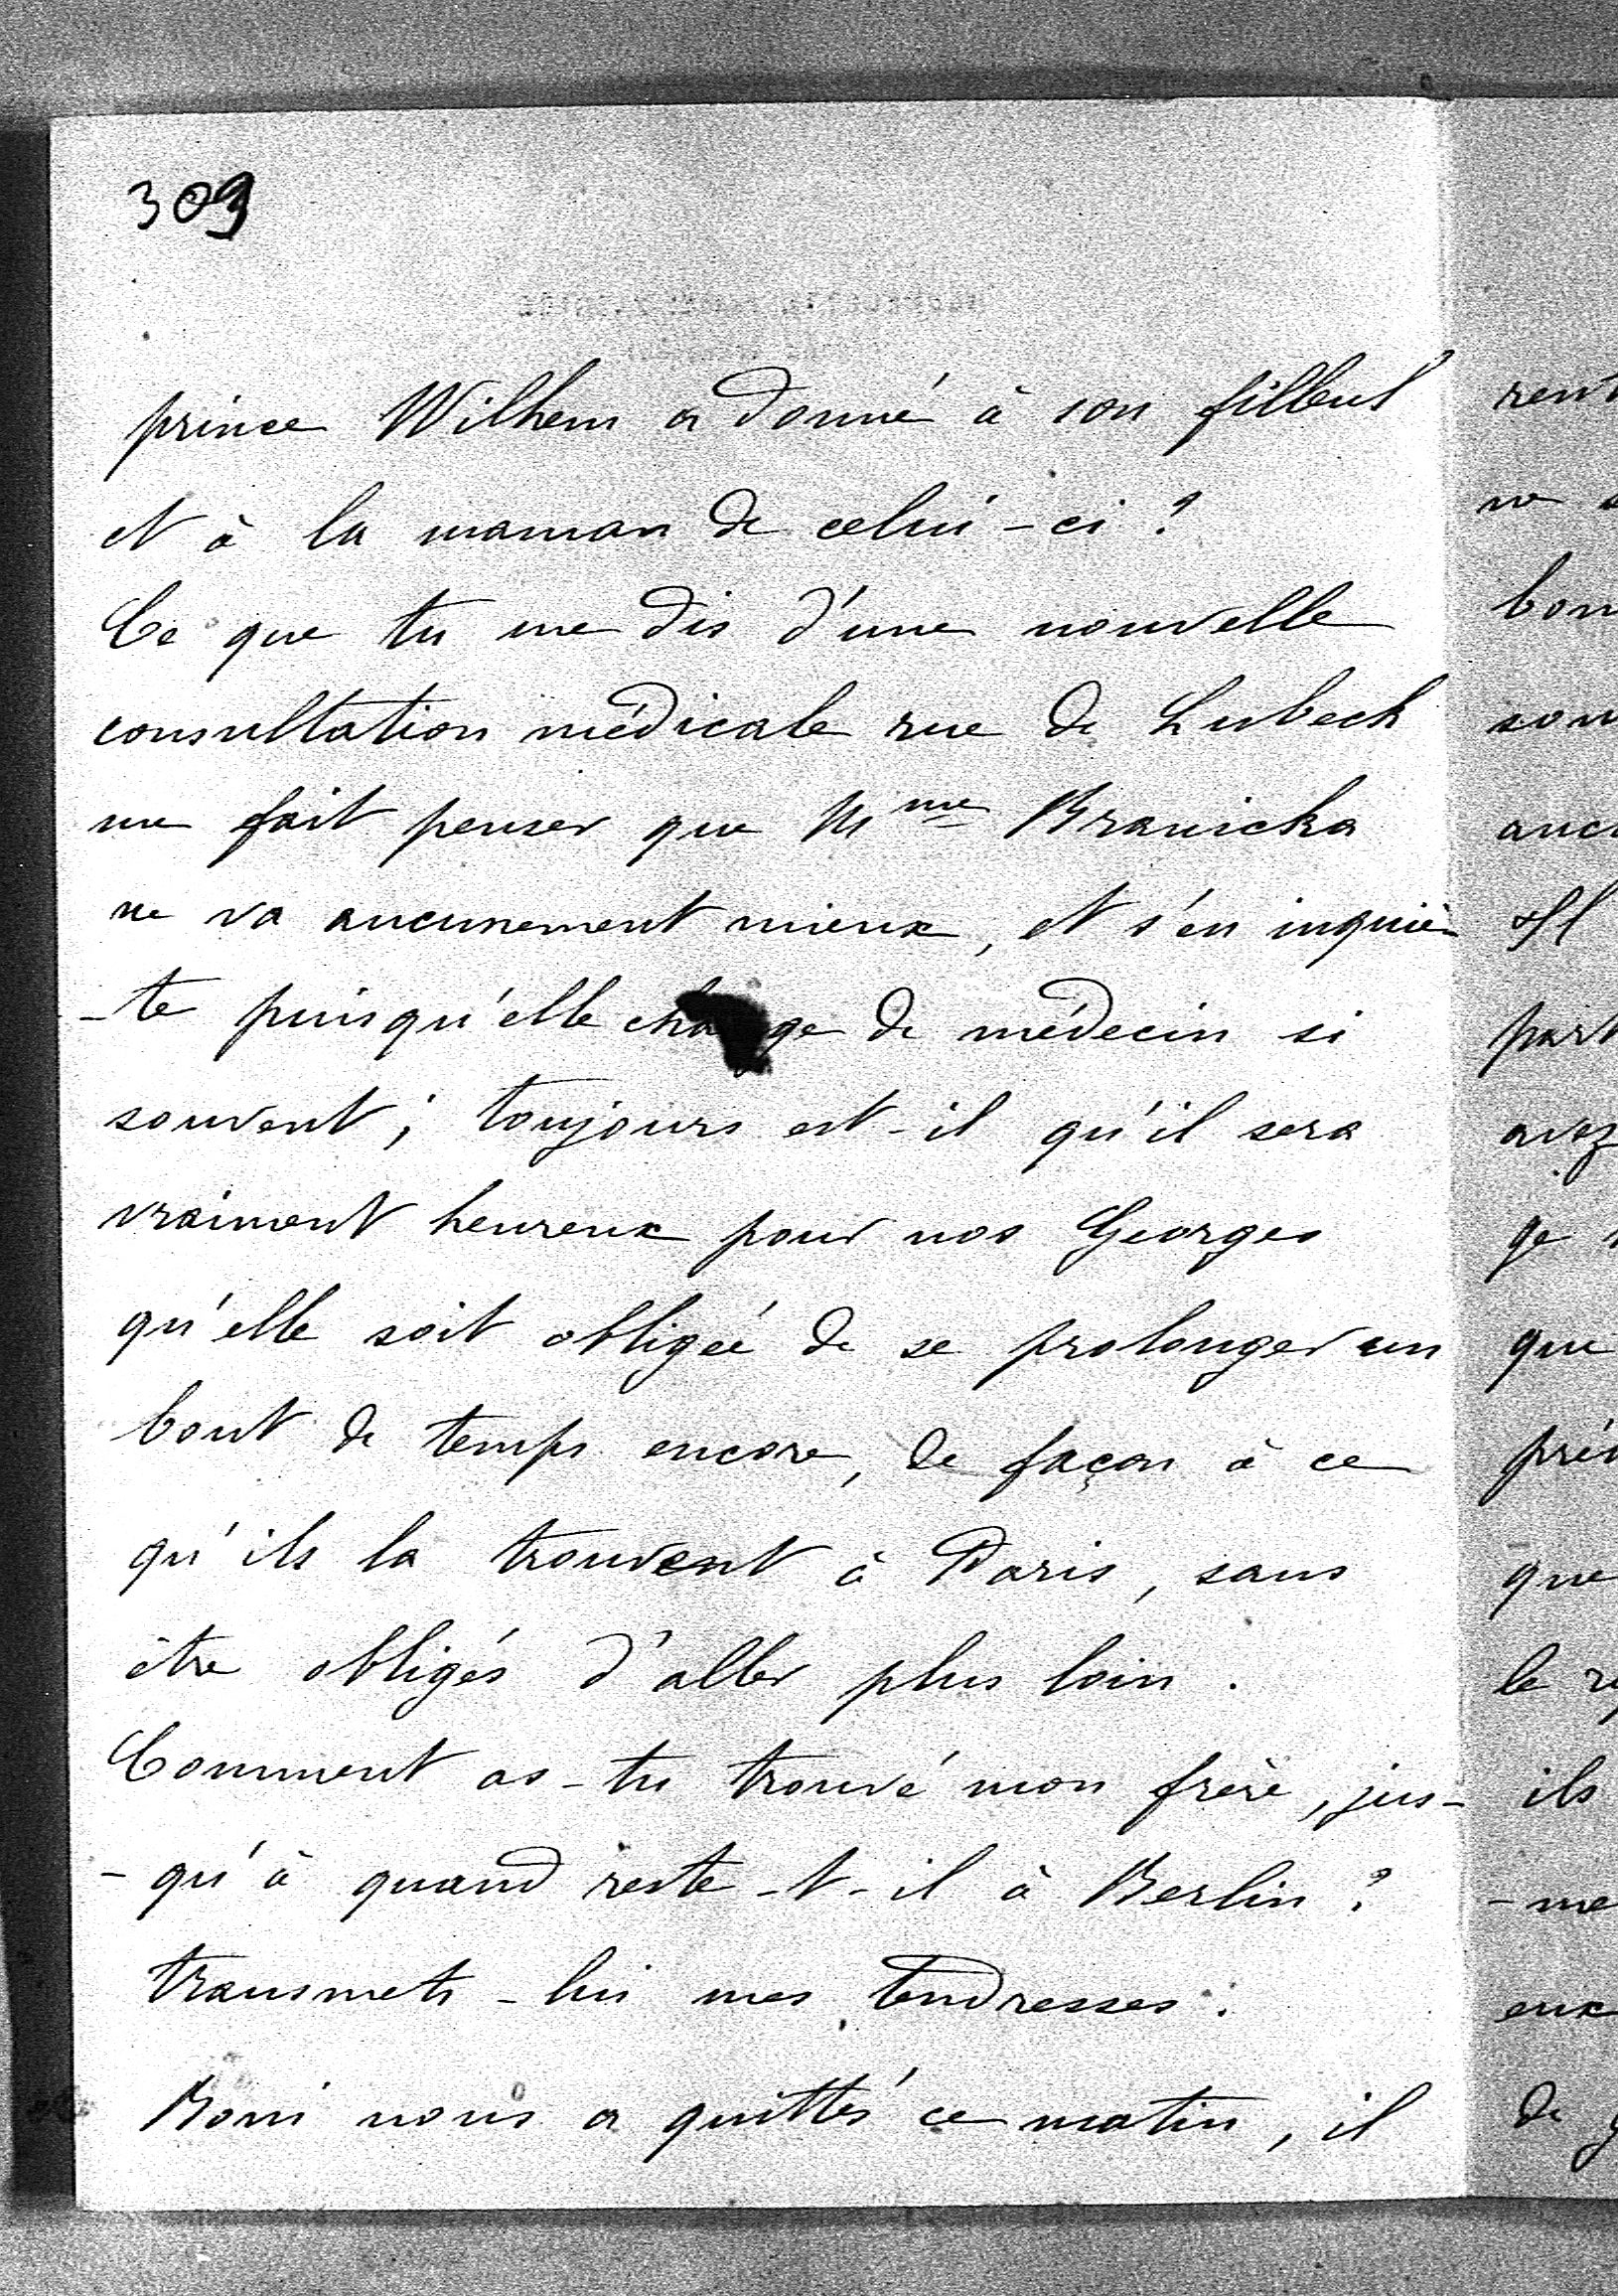 309
prince Wilhem a donné à son filleul
et à la maman de celui-ci ?
Ce que tu me dis d'une nouvelle
consultation médicale rue de Lubeck
me fait penser que Mme Branicka
ne va aucunement mieux, et s'en inquiè-
-te puisqu'elle change de médecin si
souvent ; toujours est-il qu'il sera
vraiment heureux pour nos Georges
qu'elle soit obligée de se prolonger un
bout de temps encore, de façon à ce
qu'ils la trouvent à Paris, sans
être obligés d'aller plus loin.
Comment as-tu trouvé mon frère, jus-
-qu'à quand reste-t-il à Berlin ?
transmets-lui mes tendresses.
Boni nous a quittés ce matin, il